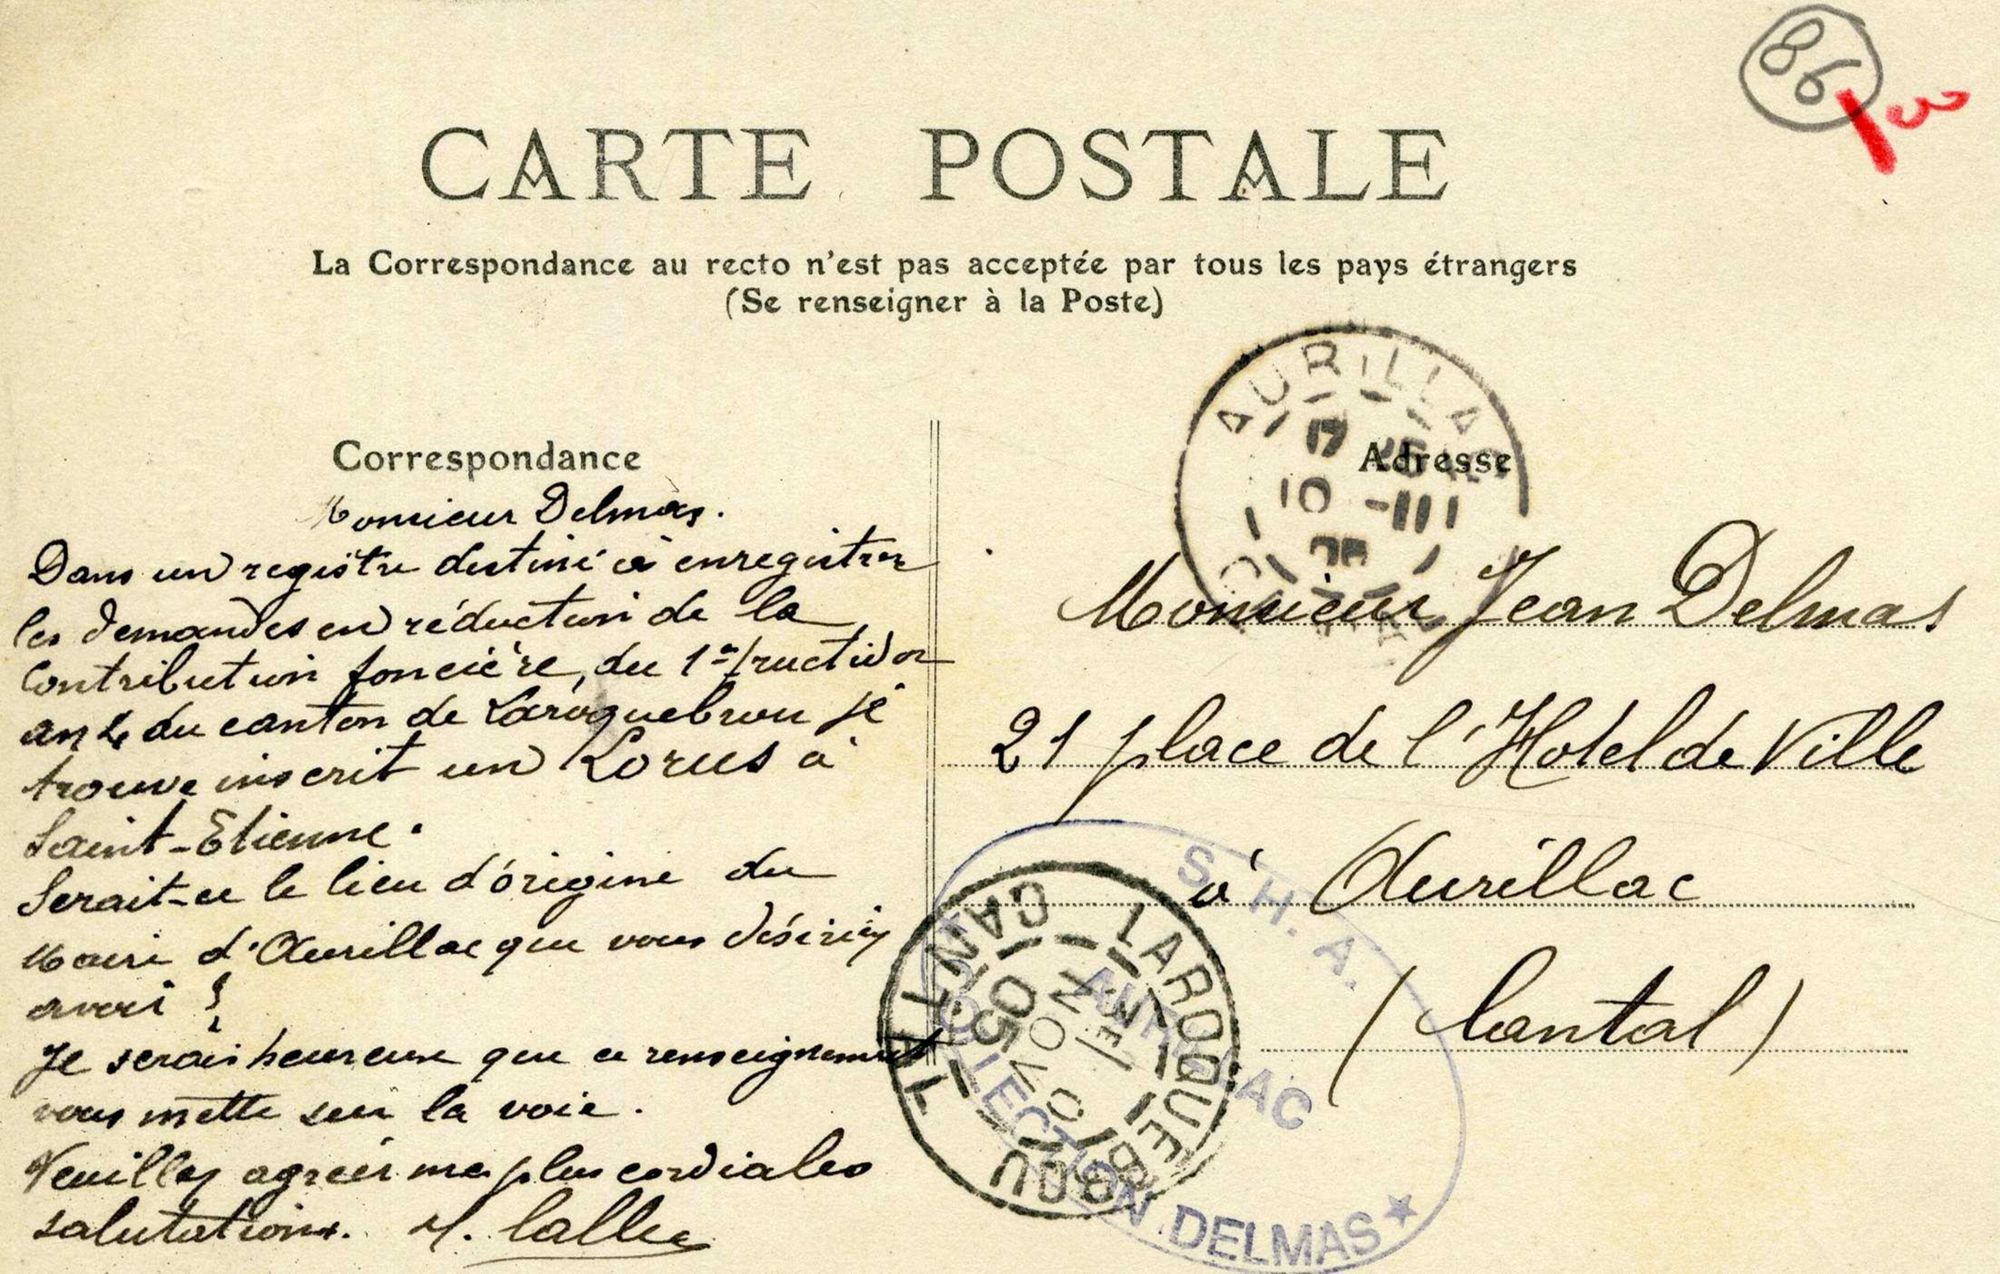 86
CARTE POSTALE
La Correspondance au recto n'est pas acceptée par tous les pays étrangers
(Se renseigner à la Poste)
Correspondance
Monsieur Delmas.
Dans un registre destiné à enregistrer
les demandes en réduction de la
Contribution foncière, du 1er fructidor
an 4 du canton de Laroquebrou je
trouve inscrit un Lorus à
Saint-Etienne.
Serait-ce le lieu d'origine du
Maire d'Aurillac que vous désiriez
avoir ?
Je serais heureux que ce renseignement
vous mette sur la voie.
Veuillez agréer mes plus cordiales
salutations.
Adresse
Monsieur Jean Delmas
21 place de l'Hotel de Ville
à Aurillac
(Cantal)
AURILLAC
10 -11
LAROQUEBROU
CANTAL
NOV
05
S. H. A.
AURILLAC
COLLECTION DELMAS